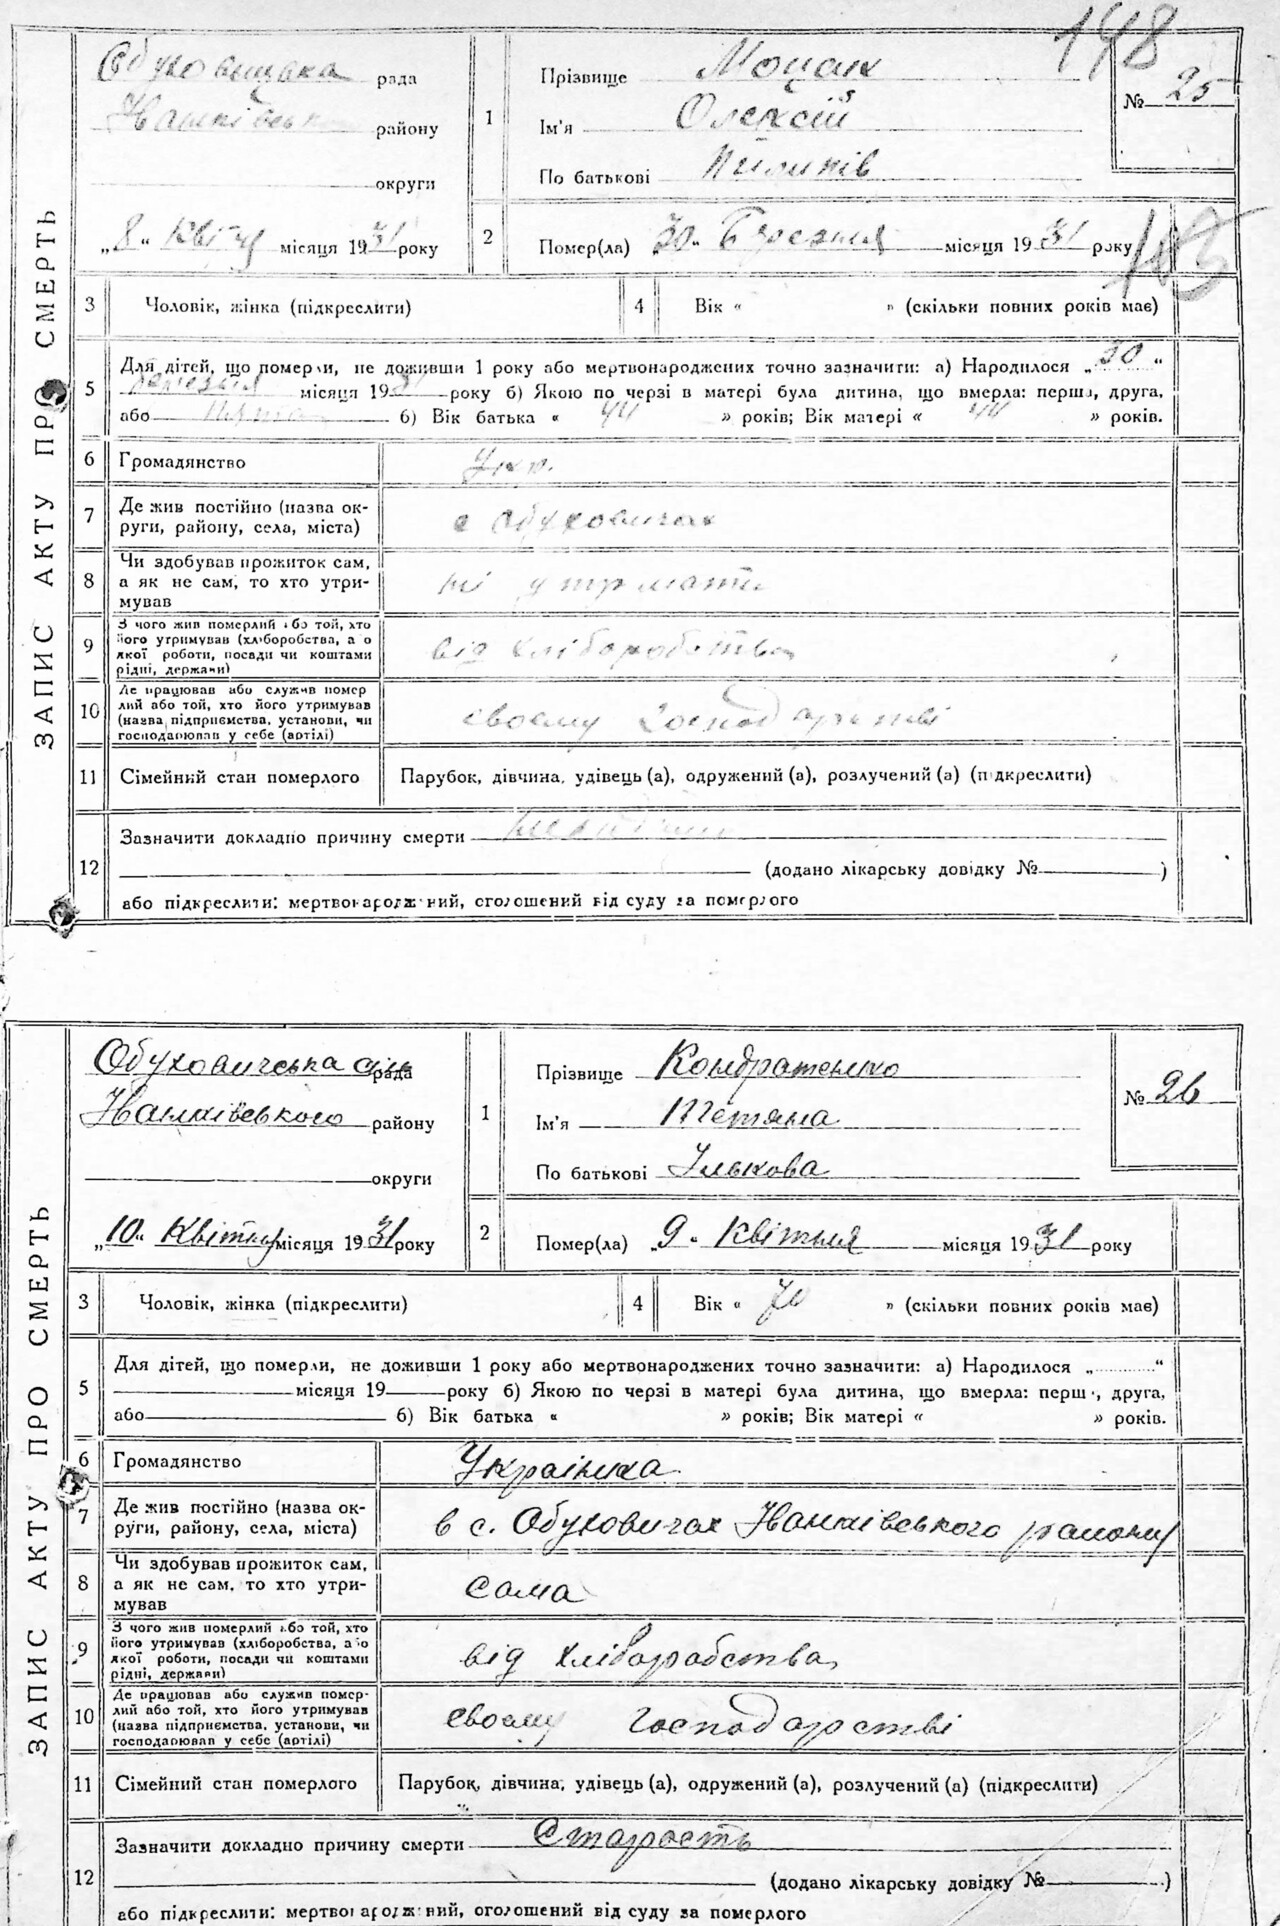 148
ЗАПИС АКТУ ПРО СМЕРТЬ
рада
району
округи
„8“ Квітня місяця 1931 року
1
Прізвище Моцак
Ім'я Олексій
По батькові Пилипів
№ 25
2
Помер(ла) „30“ Березня місяця 1931 року
3 Чоловік, жінка (підкреслити)
4 Вік « » (скільки повних років має)
5 Для дітей, що померли, не доживши 1 року або мертвонароджених точно зазначити: а) Народилося „30“
березня місяця 1931 року б) Якою по черзі в матері була дитина, що вмерла: перша, друга,
або б) Вік батька « 44 » років; Вік матері « 44 » років.
6 Громадянство Укр.
7 Де жив постійно (назва ок-
руги, району, села, міста)
в Обуховичах
8 Чи здобував прожиток сам,
а як не сам, то хто утри-
мував
9 З чого жив померлий або той, хто
його утримував (хліборобства, а о
якої роботи, посади чи коштами
рідні, держави)
від хліборобства
10 Де працював або служив помер
лий або той, хто його утримував
(назва підприємства, установи, чи
господарював у себе (артілі)
своєму господарстві
11 Сімейний стан померлого Парубок, дівчина, удівець (а), одружений (а), розлучений (а) (підкреслити)
12 Зазначити докладно причину смерти
(додано лікарську довідку № )
або підкреслити: мертвонароджений, оголошений від суду за померлого
ЗАПИС АКТУ ПРО СМЕРТЬ
Обуховичська сіль рада
Іванківського району
округи
„10“ Квітня місяця 1931 року
1
Прізвище Кондратенко
Ім'я Тетяна
По батькові Ількова
№ 26
2
Помер(ла) „9“ Квітня місяця 1931 року
3 Чоловік, жінка (підкреслити)
4 Вік « 70 » (скільки повних років має)
5 Для дітей, що померли, не доживши 1 року або мертвонароджених точно зазначити: а) Народилося „ “
місяця 19 року б) Якою по черзі в матері була дитина, що вмерла: перш , друга,
або б) Вік батька « » років; Вік матері « » років.
6 Громадянство Українка
7 Де жив постійно (назва ок-
руги, району, села, міста)
в с. Обуховичах Іванківського району
8 Чи здобував прожиток сам,
а як не сам, то хто утри-
мував
сама
9 З чого жив померлий або той, хто
його утримував (хліборобства, а о
якої роботи, посади чи коштами
рідні, держави)
від хліборобства
10 Де працював або служив помер-
лий або той, хто його утримував
(назва підприємства, установи, чи
господарював у себе (артілі)
своєму господарстві
11 Сімейний стан померлого Парубок, дівчина, удівець (а), одружений (а), розлучений (а) (підкреслити)
12 Зазначити докладно причину смерти Старость
(додано лікарську довідку № )
або підкреслити: мертвонароджений, оголошений від суду за померлого